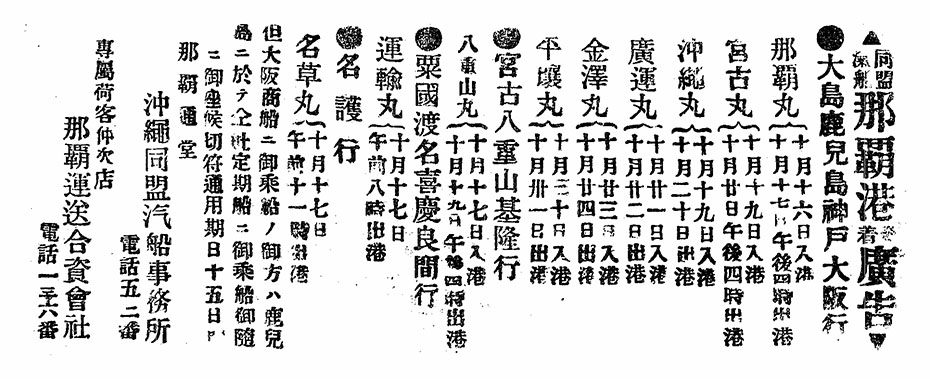 ▲同盟汽船那覇港発着廣告▼
●大島鹿兒島神戸大阪行
那覇丸 十月十六日入港
十月十七日午後四時出港
宮古丸 十月十九日入港
十月廿日午後四時出港
沖縄丸 十月十九日入港
十月二十日出港
廣運丸 十月廿一日入港
十月廿二日出港
金澤丸 十月廿三日入港
十月廿四日出港
平壤丸 十月三十日入港
十月卅一日出港
●宮古八重山基隆行
八重山丸 十月十七日入港
十月十九日午後四時出港
●粟國渡名喜慶良間行
運輸丸 十月十七日
午前八時出港
●名護行
名草丸 十月十七日
午前十一時出港
但大阪商船ニ御乗船ノ御方ハ鹿兒
島ニ於テ仝社定期船ニ御乗船御随
ニ御座候切符通用期日十五日
那覇通堂
沖繩同盟汽船事務所
電話五二番
專屬荷客仲次店
那覇運送合資會社
電話一三六番